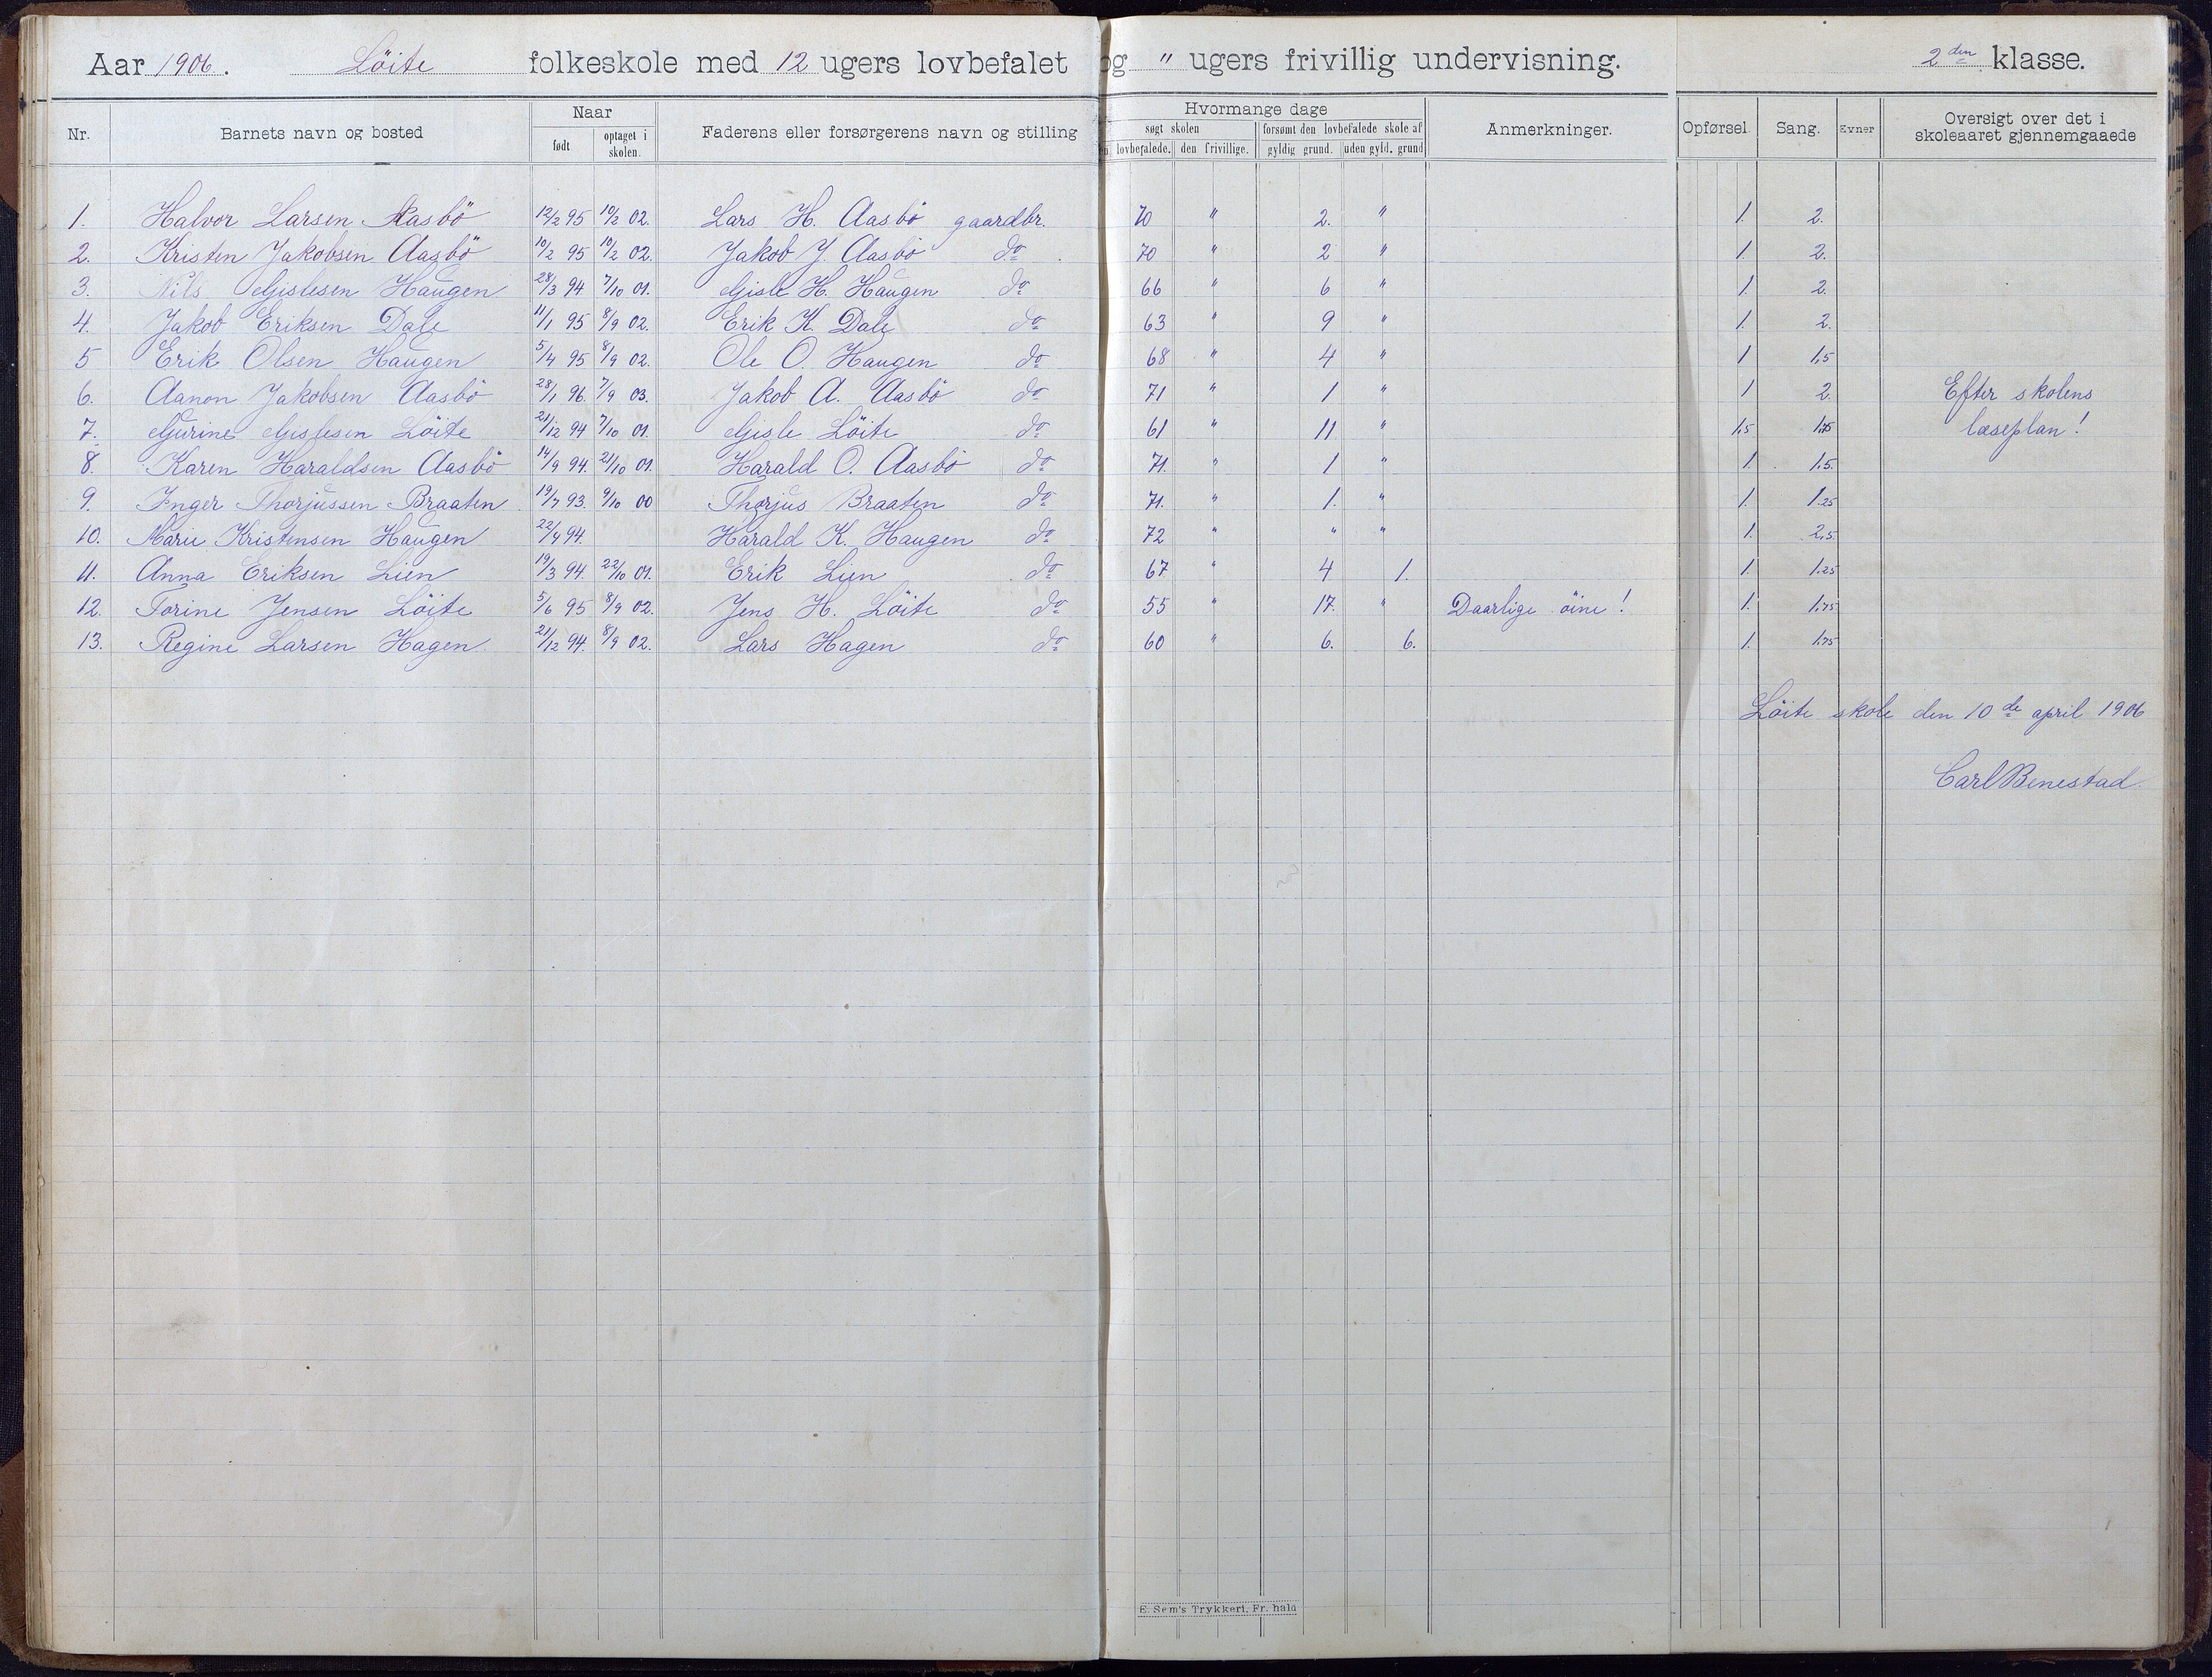 Aar 1906. Löite folkeskole med 12 ugers lovbefalet og " ugers frivillig undervisning. 2den klasse.
Nr. Barnets navn og bosted Naar født optaget i skolen. Faderens eller forsørgerens navn og stilling Hvormange dage søgt skolen lovbefalede. den frivillige. forsømt den lovbefalede skole af gyldig grund. uden gyld. grund Anmerkninger. Opførsel. Sang. Evner Oversigt over det i skoleaaret gjennemgaaede
1. Halvor Larsen Aasbö 12/2 95 10/2 02. Lars H. Aasbö gaardbr. 70 " 2. " 1. 2.
2. Kristen Jakobsen Aasbö 10/2 95 10/2 02. Jakob J. Aasbö do 70 " 2 " 1. 2.
3. Nils Gislesen Haugen 28/3 94 7/10 01. Gisle H. Haugen do 66 " 6 " 1. 2.
4. Jakob Eriksen Dale 11/1 95 8/9 02. Erik K. Dale do 63 " 9 " 1. 2.
5 Erik Olsen Haugen 5/4 95 8/9 02. Ole O. Haugen do 68 " 4 " 1 1,5
6. Aanon Jakobsen Aasbö 28/1 96. 7/9 03. Jakob A. Aasbö do 71 " 1 " 1 2. Efter skolens
7. Gurine Gislesen Löite 21/12 94 7/10 01. Gisle Löite do 61 " 11 " 1,5 1,75 læseplan!
8. Karen Haraldsen Aasbö 14/9 94. 21/10 01. Harald O. Aasbö do 71. " 1 " 1. 1.5.
9. Inger Thorjussen Braaten 19/7 93. 9/10 00 Thorjus Braaten do 71. " 1. " 1. 1.25
10. Marie Kristensen Haugen 22/4 94. Harald K. Haugen do 72 " " " 1. 2,5.
11. Anna Eriksen Lien 19/3 94. 22/10 01. Erik Lien do 67 " 4 1. 1. 1.25
12. Torine Jensen Löite 5/6 95 8/9 02. Jens H. Löite do 55 " 17. " Daarlige öine! 1. 1.75
13. Regine Larsen Hagen 21/12 94. 8/9 02. Lars Hagen do 60 " 6. 6. 1. 1.75
Löite skole den 10de april 1906
Carl Benestad.
E. Sem's Trykkeri, Fr. hald